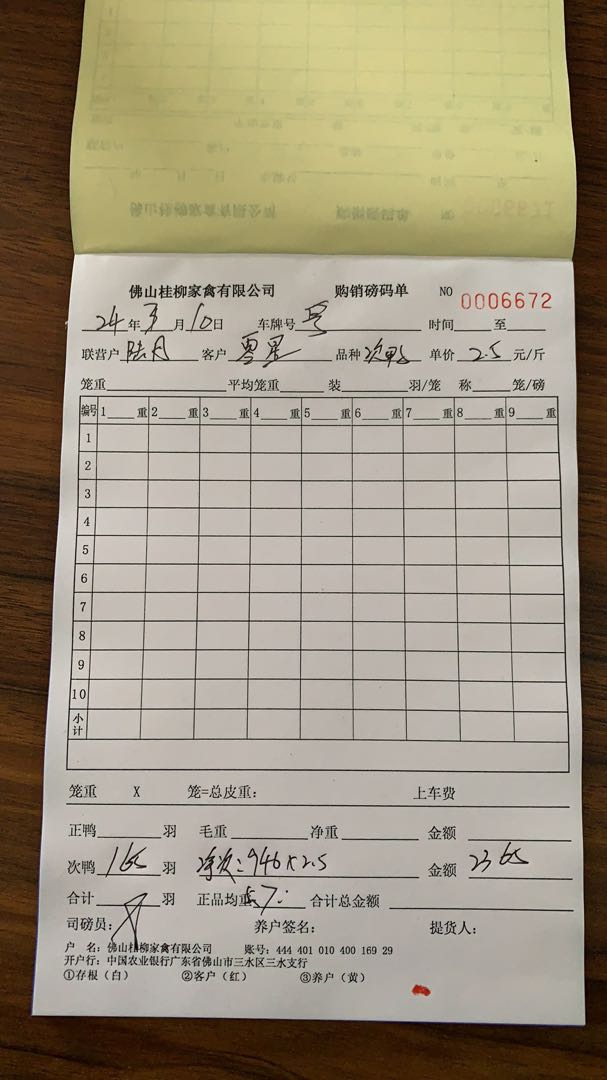 佛山桂柳家禽有限公司 购销磅码单 NO 0006672
24年3月10日 车牌号 时间 至
联营户 陆月 客户 零星 品种 次鸭 单价 2.5 元/斤
笼重 平均笼重 装 羽/笼 称 笼/磅
编号 1 重 2 重 3 重 4 重 5 重 6 重 7 重 8 重 9 重
1
2
3
4
5
6
7
8
9
10
小计
笼重 X 笼=总皮重: 上车费
正鸭 羽 毛重 净重 金额
次鸭 165 羽 净次:946×2.5 金额 2365
合计 羽 正品均重 合计总金额
司磅员: 养户签名: 提货人:
户 名: 佛山桂柳家禽有限公司 账号: 444 401 010 400 169 29
开户行: 中国农业银行广东省佛山市三水区三水支行
①存根(白) ②客户(红) ③养户(黄)